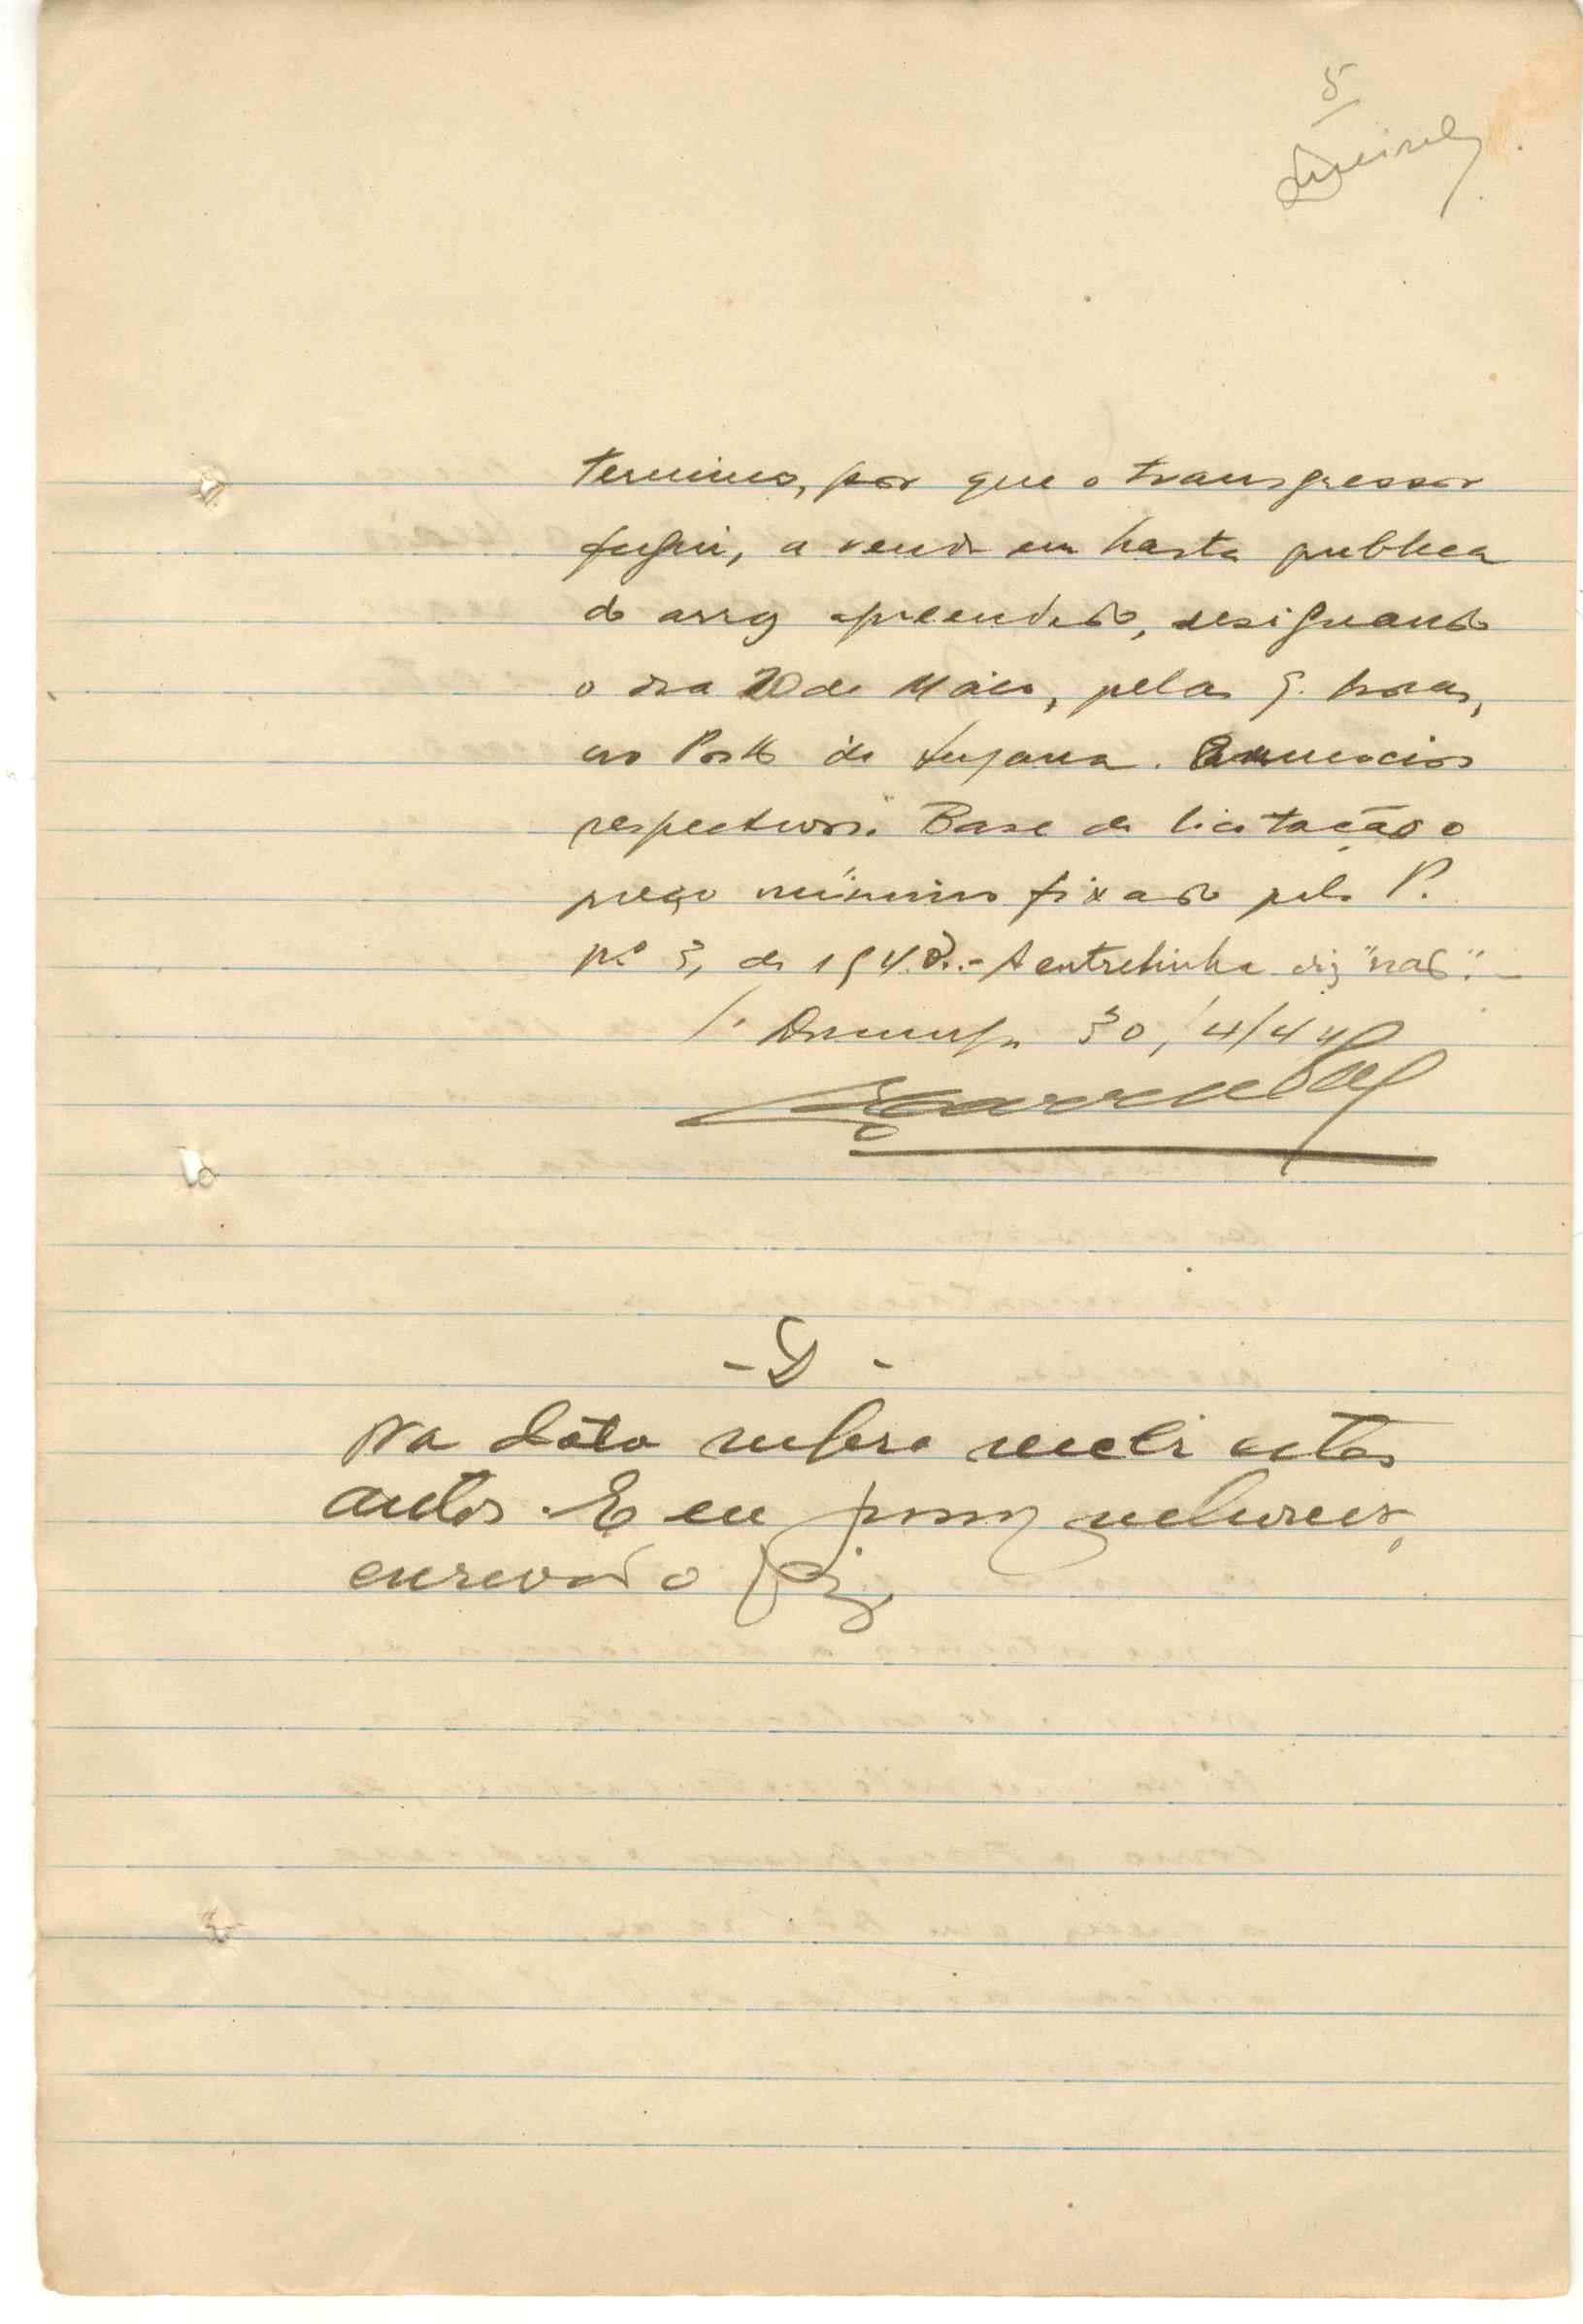 5
termino, por que o transgressor
fugiu, a venda em hasta publica
do arroz apreendido, designando
o dia 20 de Maio, pelas 9. horas,
no Posto de. Anuncios
respectivos. Base da licitação o
preço minimo fixado pelo P.
nº 3, de 1943.- A entrelinha diz "não".-
S. Domingos 30/4/44
-D-
Na data supra recebi estes
autos. E eu
escrivão o fiz